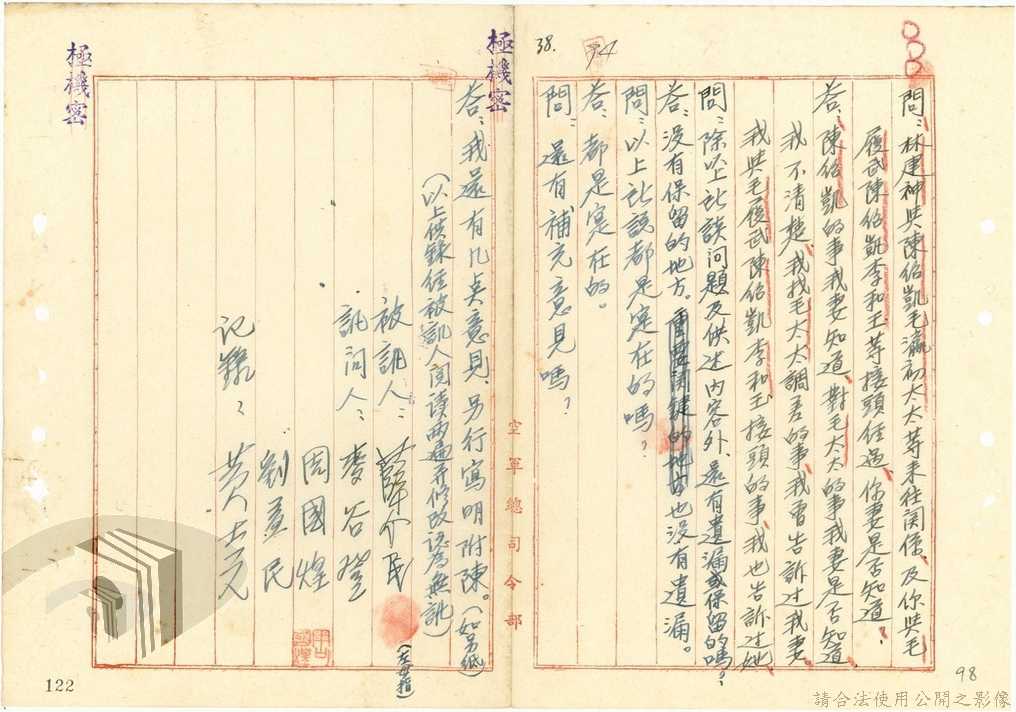 極機密
38.
問：林建神與陳紹凱毛瀛初太太等來往関係、及你與毛
履武陳紹凱李和玉等接頭經過、你妻是否知道？
答：陳紹凱的事我妻知道、對毛太太的事我妻是否知道
我不清楚、我找毛太太調差的事、我曾告訴过我妻。
我與毛履武陳紹凱李和玉接頭的事、我也告訴过她、
問：除以上所談问題及供述内容外、還有遺漏或保留的嗎？
答：没有保留的地方。也没有遺漏。
問：以上所說都是寔在的嗎？
答：都是寔在的。
問：還有補充意見嗎？
空軍總司令部
極機密
答：我還有几点意見、另行寫明附陳。（如另紙）
（以上供錄經被訊人閲读两遍并修改認為無訛）
被訊人：薛介民
（左母指）
訊问人：麥谷登
周國煌
劉孟民
记錄：黄士元
122
98
請合法使用公開之影像